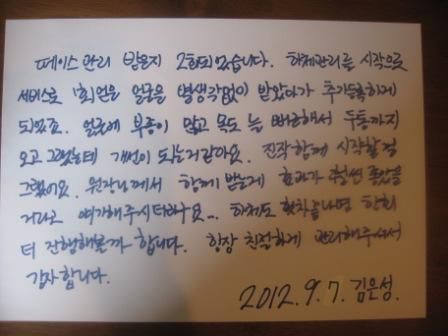 페이스 관리 받은지 2회되었습니다. 하체관리를 시작으로
서비스로 1회얻은 얼굴을 별생각없이 받았다가 추가등록하게
되었죠. 얼굴에 부종이 많고 목도 늘 뻐근해서 두통까지
오고 그랬는데 개선이 되는거같아요. 진작 함께 시작할걸
그랬어요. 원장님께서 함께 받는게 효과가 훨씬 좋았을
거라고 얘기해주시더라구요... 하체도 횟차끝나면 한회
더 진행해볼까 합니다. 항상 친절하게 관리해주셔서
감사합니다.
2012. 9. 7. 김은성.